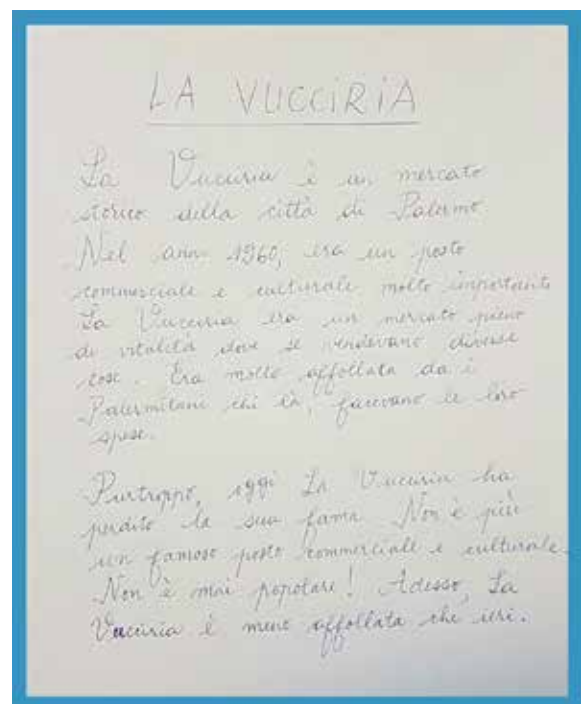 LA VUCCIRIA
La Vucciria è un mercato
storico della città di Palermo
Nel anni 1960, era un posto
commerciale e culturale molto important
La Vucciria era un mercato pieno
di vitalità dove se vendevano diverse
cose. Era molto affollata da i
Palermitani chi là, facevano le loro
spese.
Purtroppo, oggi La Vucciria ha
perdito la sua fama. Non è più
un famoso posto commerciale e culturale.
Non è mai popolare! Adesso, La
Vucciria è meno affollata che ieri.